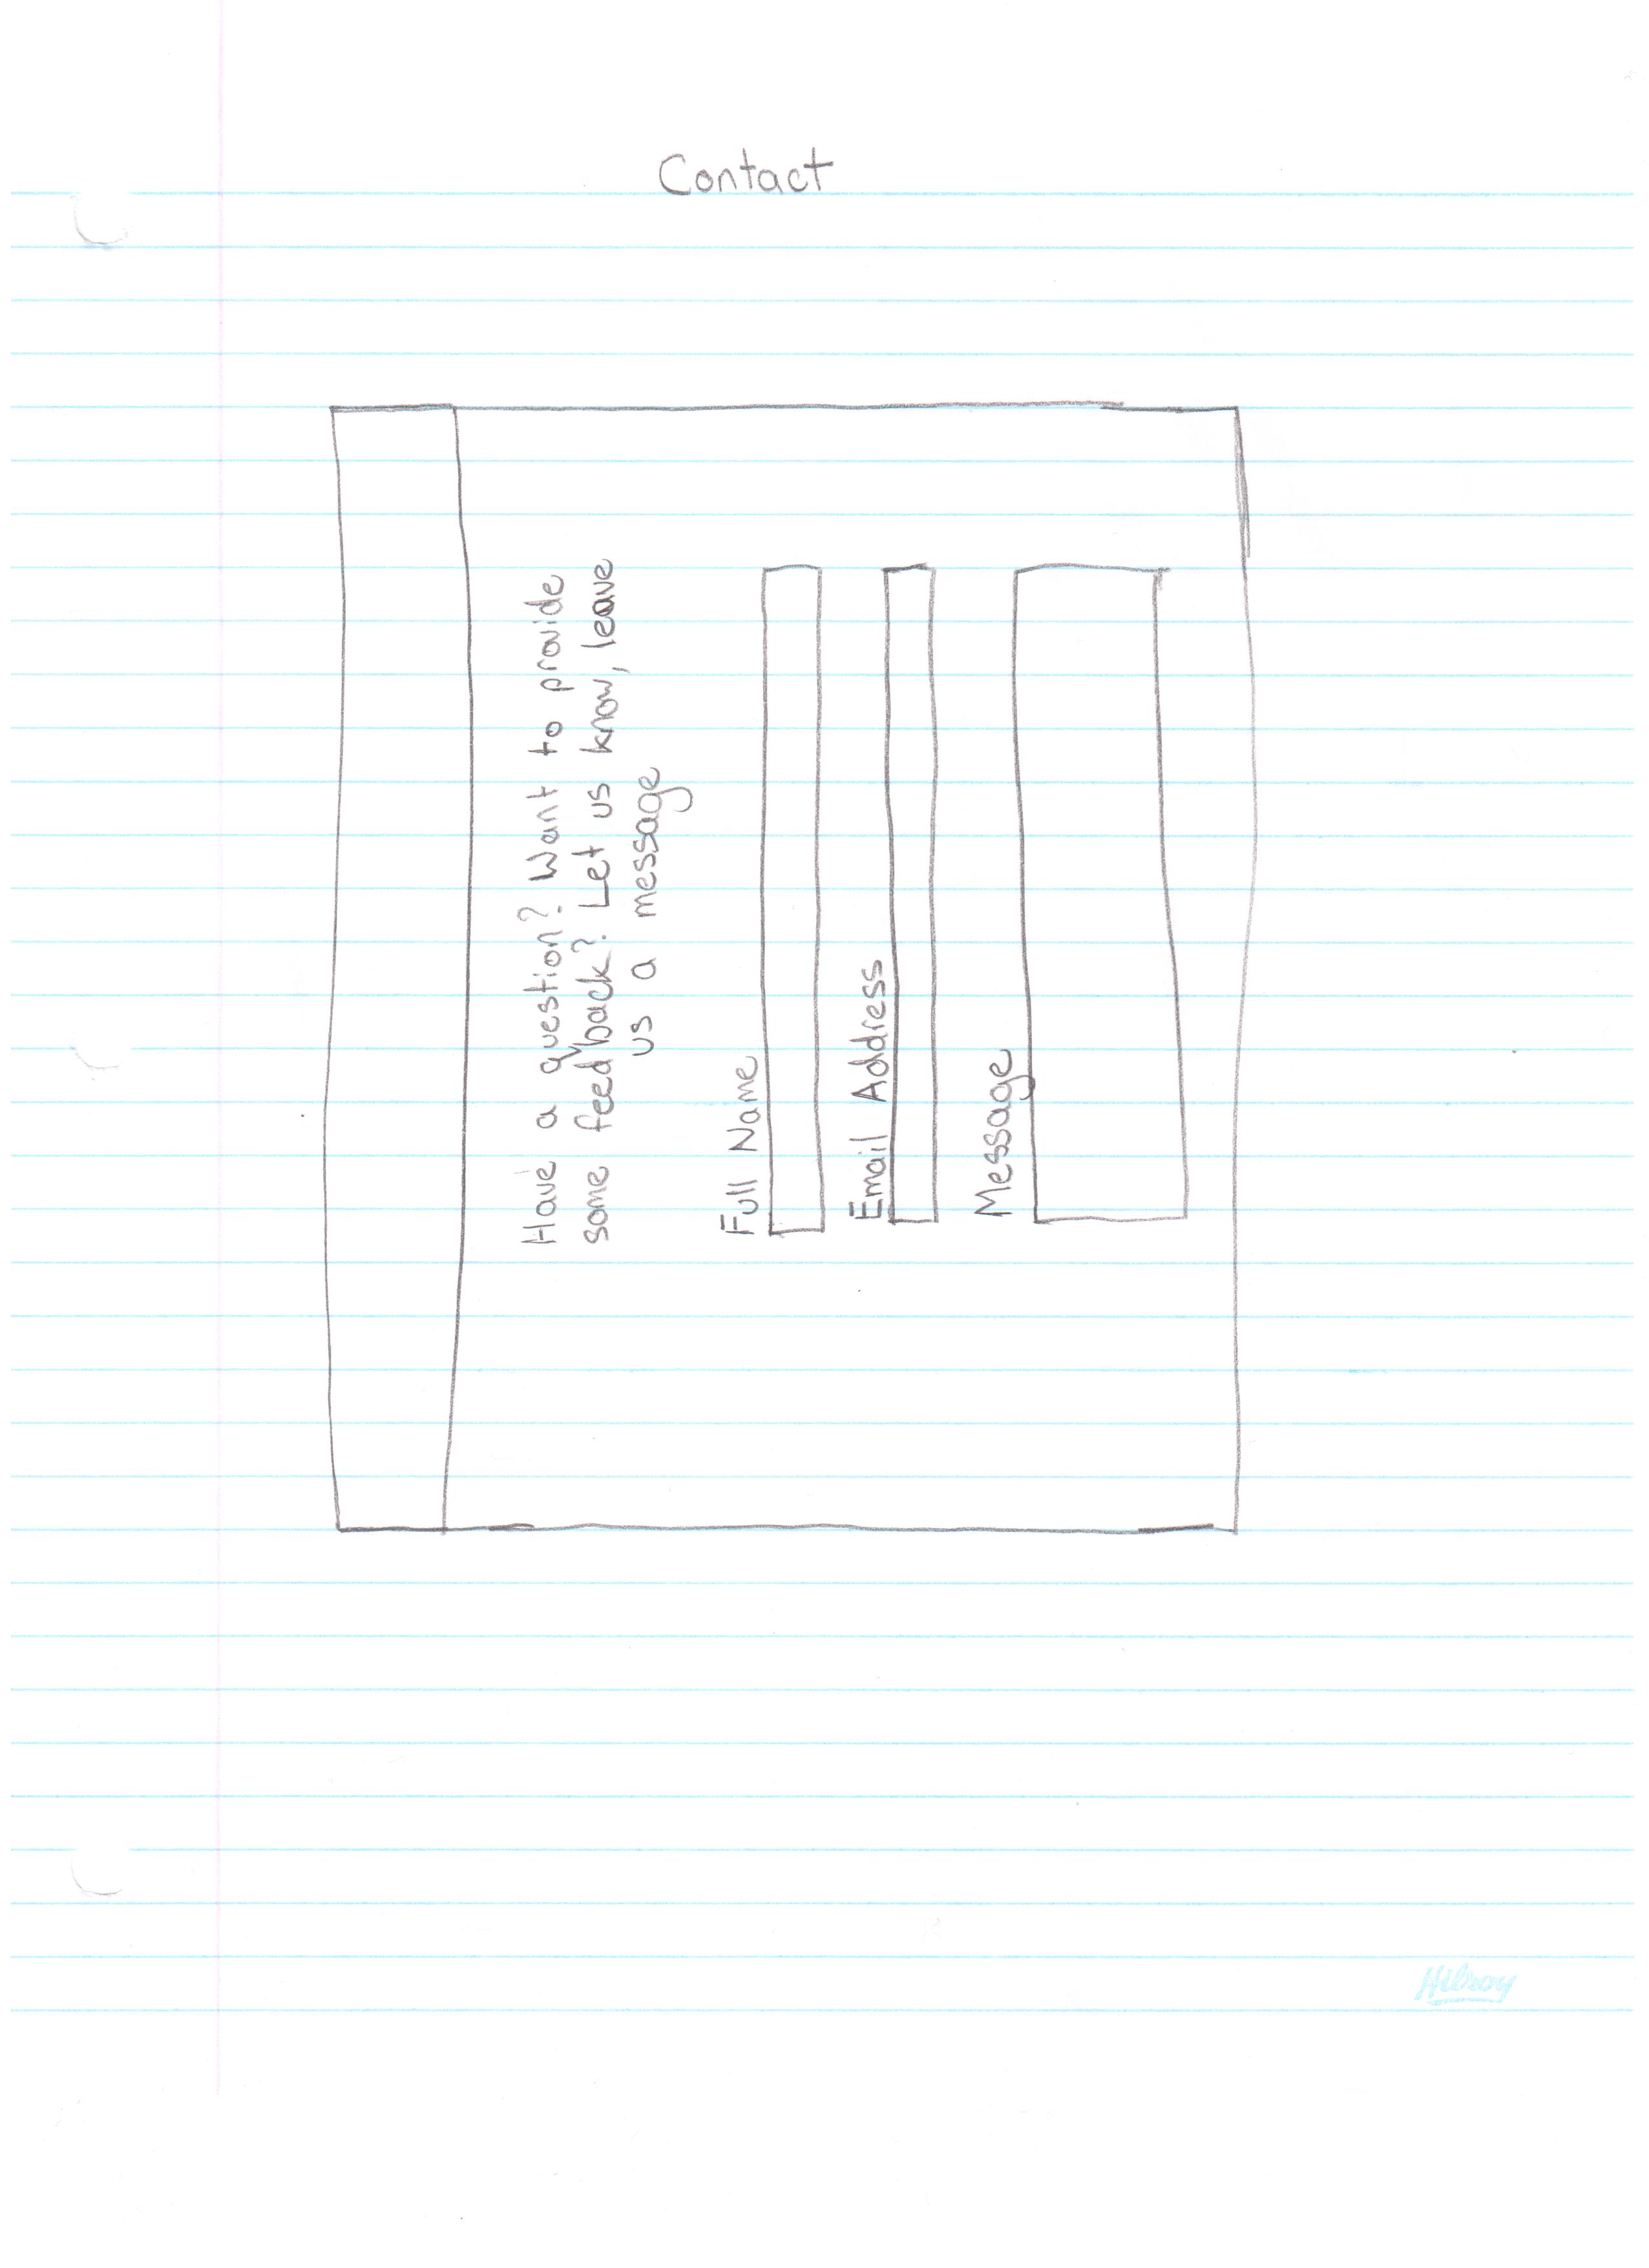 Contact
Have a question? Want to provide
some feedback? Let us know, leave
us a message
Full Name
Email Address
Message
Hilroy